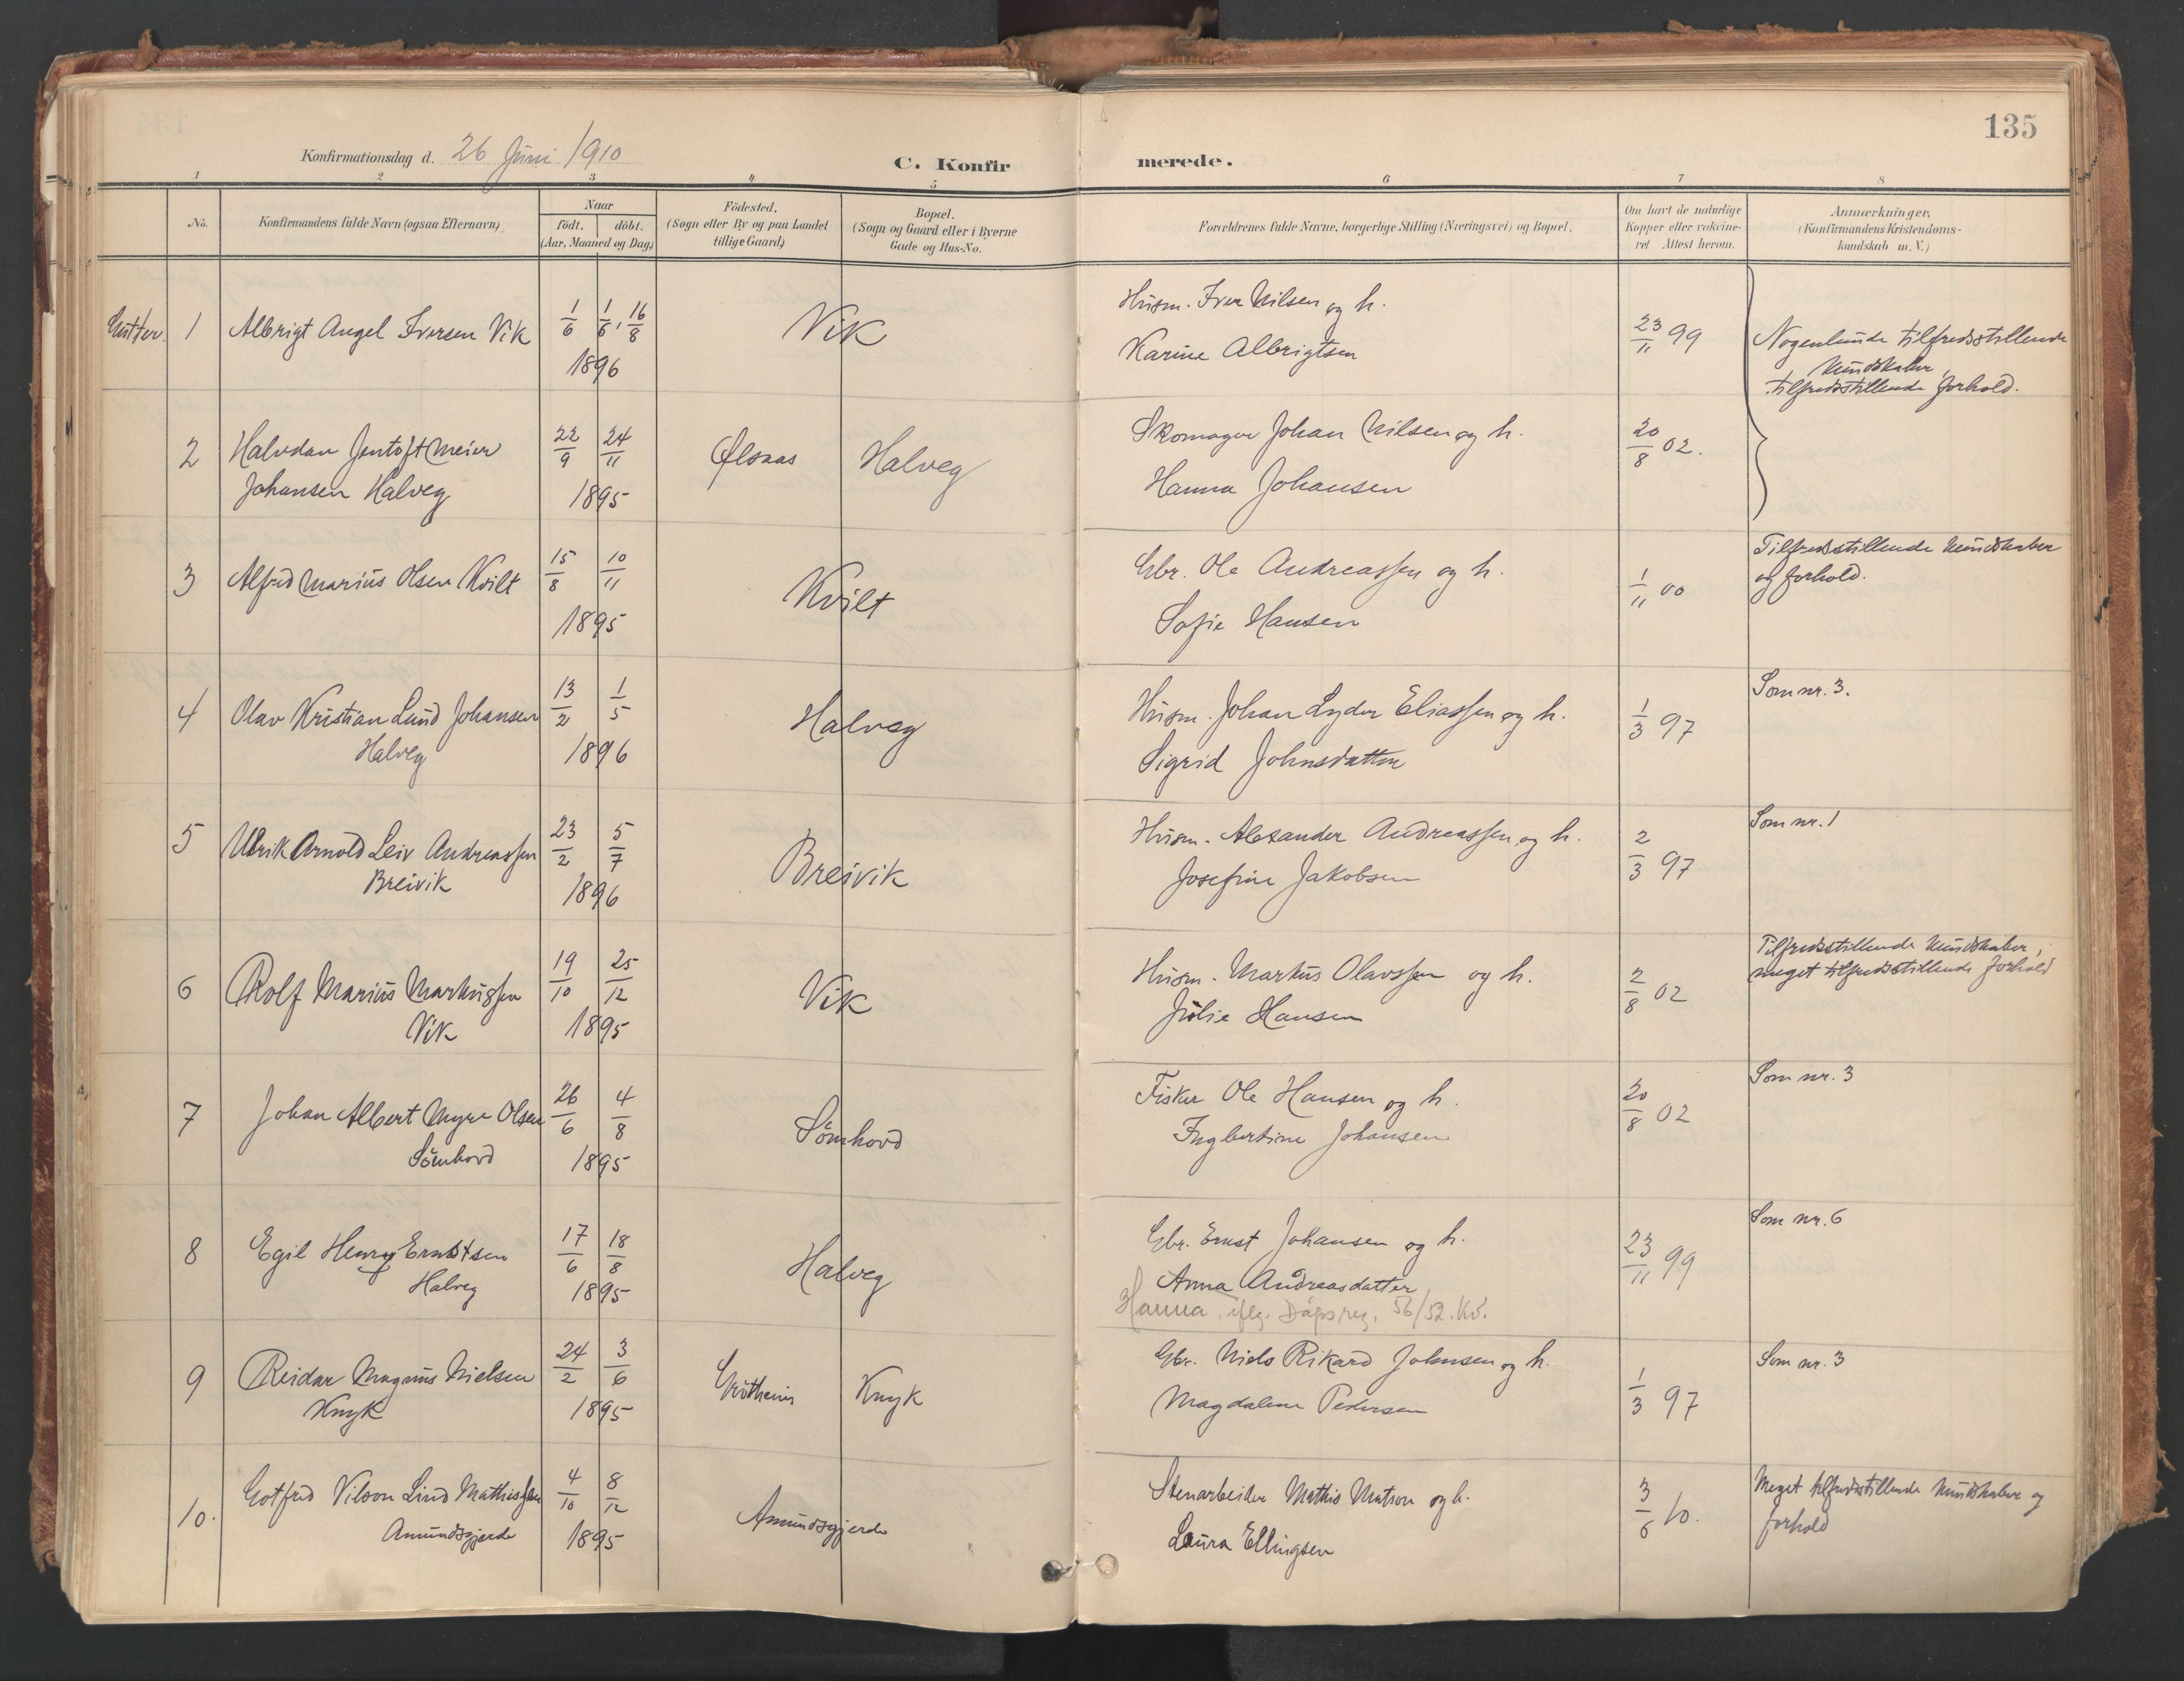 135
Konfirmationsdag d. 26 Juni 1910
C. Konfirmerede.
1 2 3 4 5 6 7 8
No.
Konfirmandens fulde Navn (ogsaa Efternavn)
Naar
födt. döbt.
(Aar, Maaned og Dag)
Födested.
(Sogn eller By og paa Landet
tillige Gaard)
Bopæl.
(Sogn og Gaard eller i Byerne
Gade og Hus-No.
Forældrenes fulde Navne, borgerlige Stilling (Næringsvei) og Bopæl.
Om havt de naturlige
Kopper eller vakcine-
ret Attest herom.
Anmærkninger.
(Konfirmandens Kristendoms-
kundskab m. V.)
Gutter. 1 Albrigt Angel Iversen Vik 1/6 1/6, 16/8 1896 Vik
Husm. Iver Nilsen og h.
Karine Albrigtsen
23/11 99
Nogenlunde tilfredsstillende
kundskaber,
tilfredsstillende forhold.
2 Halvdan Jentoft Meier
Johansen Halveg
22/9 24/11 1895
Halveg
Skomager Johan Nilsen og h.
Hanna Johansen
20/8 02.
3 Alfred Marius Olsen Kvilt 15/8 10/11 1895 Kvilt
Gbr. Ole Andreassen og h.
Sofie Hansen
1/11 00
Tilfredsstillende kundskaber
og forhold.
4 Olav Kristian Lund Johansen
Halveg
13/2 1/5 1896
Halveg
Husm. Johan Lyder Eliassen og h.
Sigrid Johnsdatter
1/3 97
Som nr. 3.
5 Ulrik Arnold Leiv Andreassen
Breivik
23/2 5/7 1896
Breivik
Husm. Alexander Andreassen og h.
Josefine Jakobsen
2/3 97
Som nr. 1
6 Rolf Marius Markussen
Vik
19/10 25/12 1895
Vik
Husm. Markus Olavssen og h.
Julie Hansen
2/8 02
Tilfredsstillende kundskaber,
meget tilfredsstillende forhold
7 Johan Albert Myre Olsen
Sömhovd
26/6 4/8 1895
Sömhovd
Fisker Ole Hansen og h.
Ingbertine Johansen
20/8 02
Som nr. 3
8 Egil Henry Erntstsen
Halveg
17/6 18/8 1895
Halveg
Gbr. Ernst Johansen og h.
Anna Andreasdatter
Hanna, iflg. Dåpsreg. 56/52. Kv.
23/11 99
Som nr. 6
9 Reidar Magnus Nielsen
Knyk
24/2 3/6 1895
Knyk
Gbr. Niels Rikard Johnsen og h.
Magdalene Pedersen
1/3 97
Som nr. 3
10. Gotfred Vilson Lind Mathissen
Amundsgjerde
4/10 8/12 1895
Amundsgjerde
Stenarbeider Mathis Matson og h.
Laura Ellingsen
3/6 10.
Meget tilfredsstillende kundskaber og
forhold